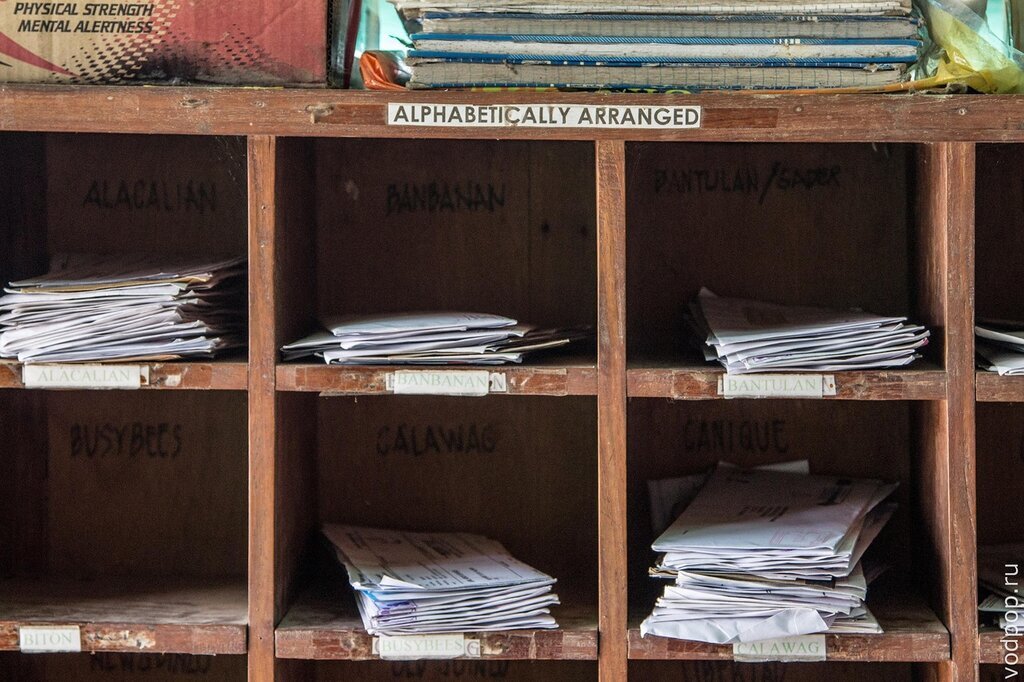 PHYSICAL STRENGTH
MENTAL ALERTNESS
ALPHABETICALLY ARRANGED
ALACALIAN
BANBANAN
BANTULAN/SADER
ALACALIAN
BANBANAN
BANTULAN
BUSYBEES
CALAWAG
CANIQUE
BITON
BUSYBEES
CALAWAG
vodpop.ru